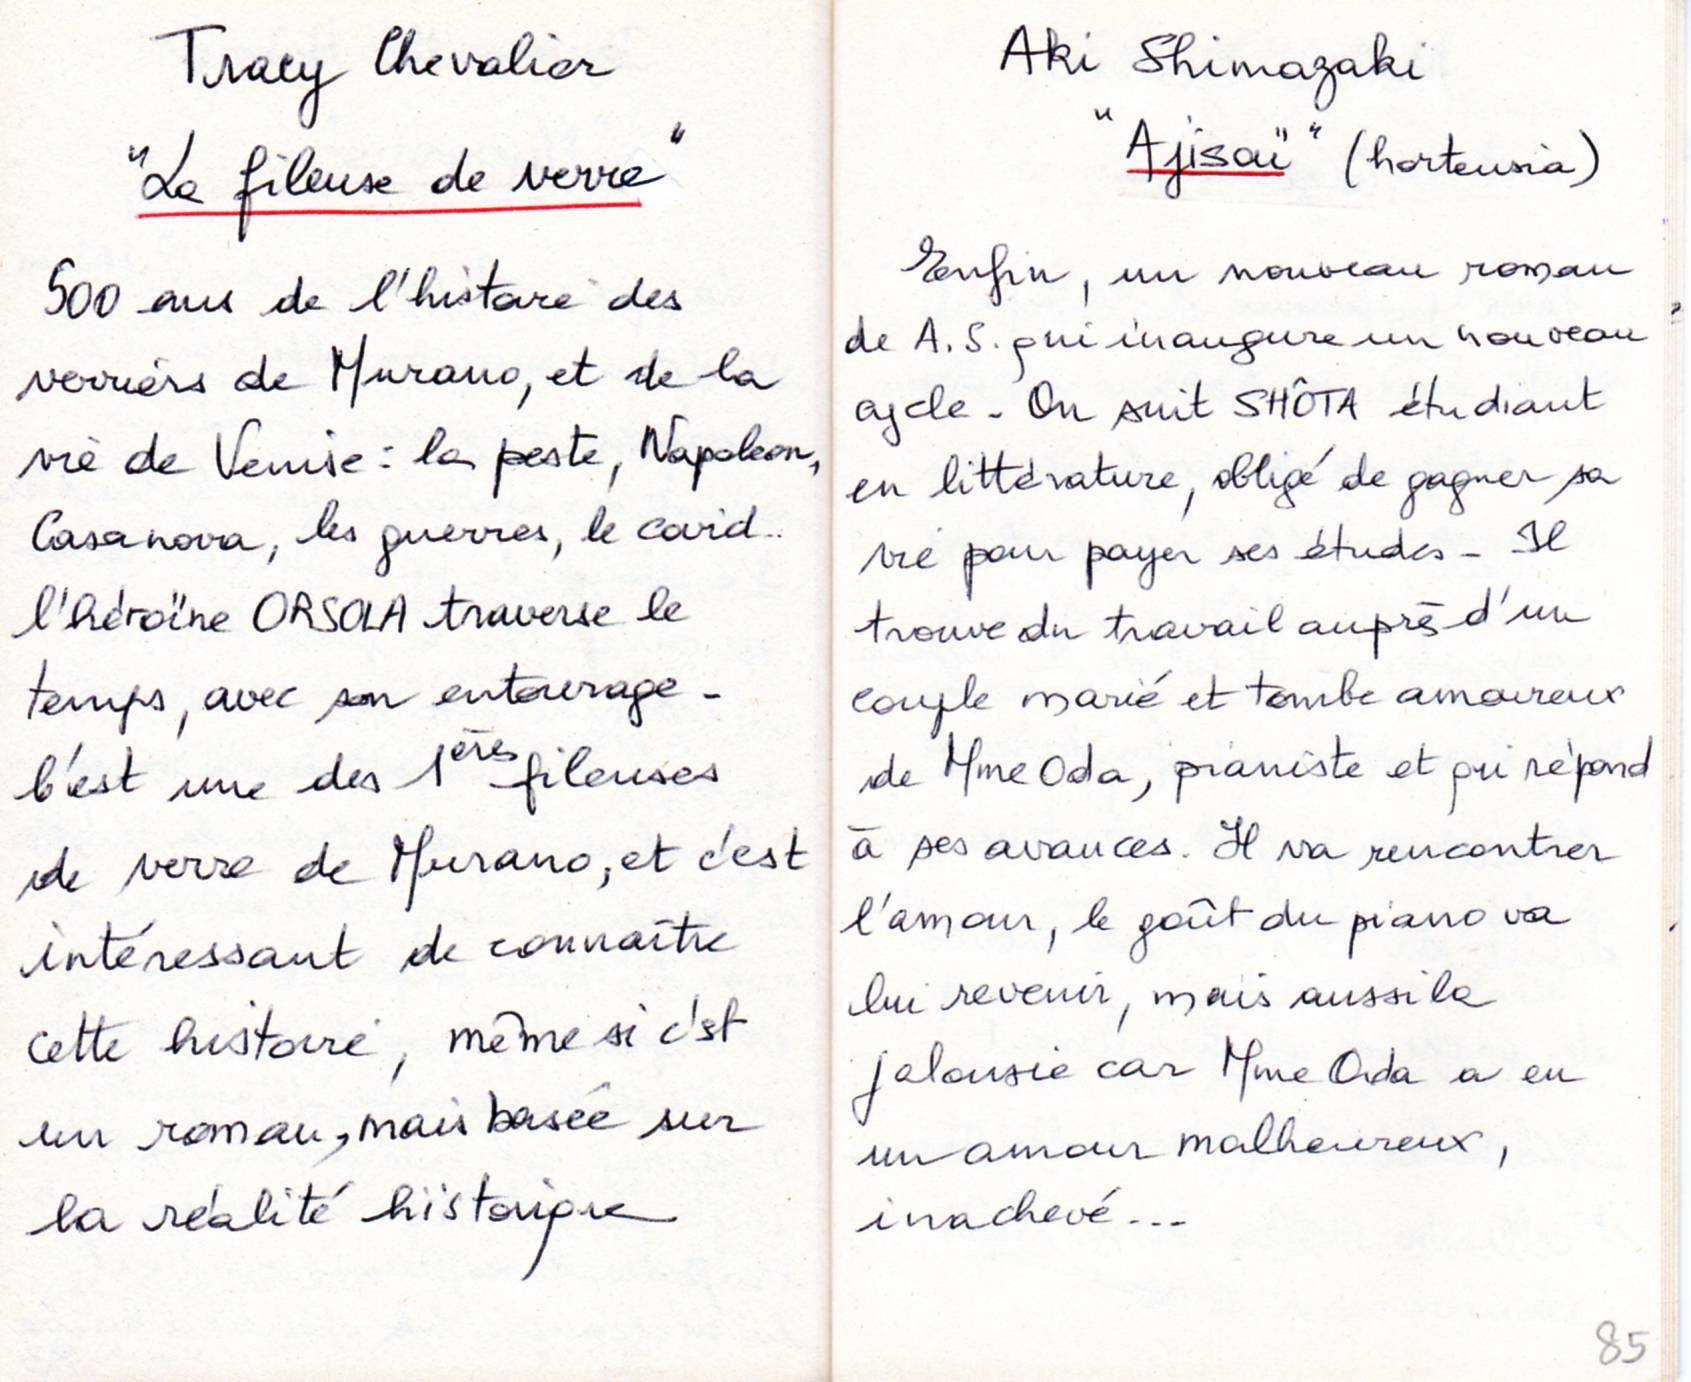 Tracy Chevalier
"La fileuse de verre"
500 ans de l'histoire des
verriers de Murano, et de la
vie de Venise : la peste, Napoleon,
Casanova, les guerres, le covid..
l'héroïne ORSOLA traverse le
temps, avec son entourage -
C'est une des 1ères fileuses
de verre de Murano, et c'est
intéressant de connaître
cette histoire, même si c'st
un roman, mais basée sur
la réalité historique
Aki Shimazaki
"Ajisaï" (hortensia)
Enfin, un nouveau roman
de A.S. qui inaugure un nouveau
cycle - On suit SHÔTA étudiant
en littérature, obligé de gagner sa
vie pour payer ses études - Il
trouve du travail auprès d'un
couple marié et tombe amoureux
de Mme Oda, pianiste et qui répond
à ses avances. Il va rencontrer
l'amour, le goût du piano va
lui revenir, mais aussi la
jalousie car Mme Oda a eu
un amour malheureux,
inachevé...
85